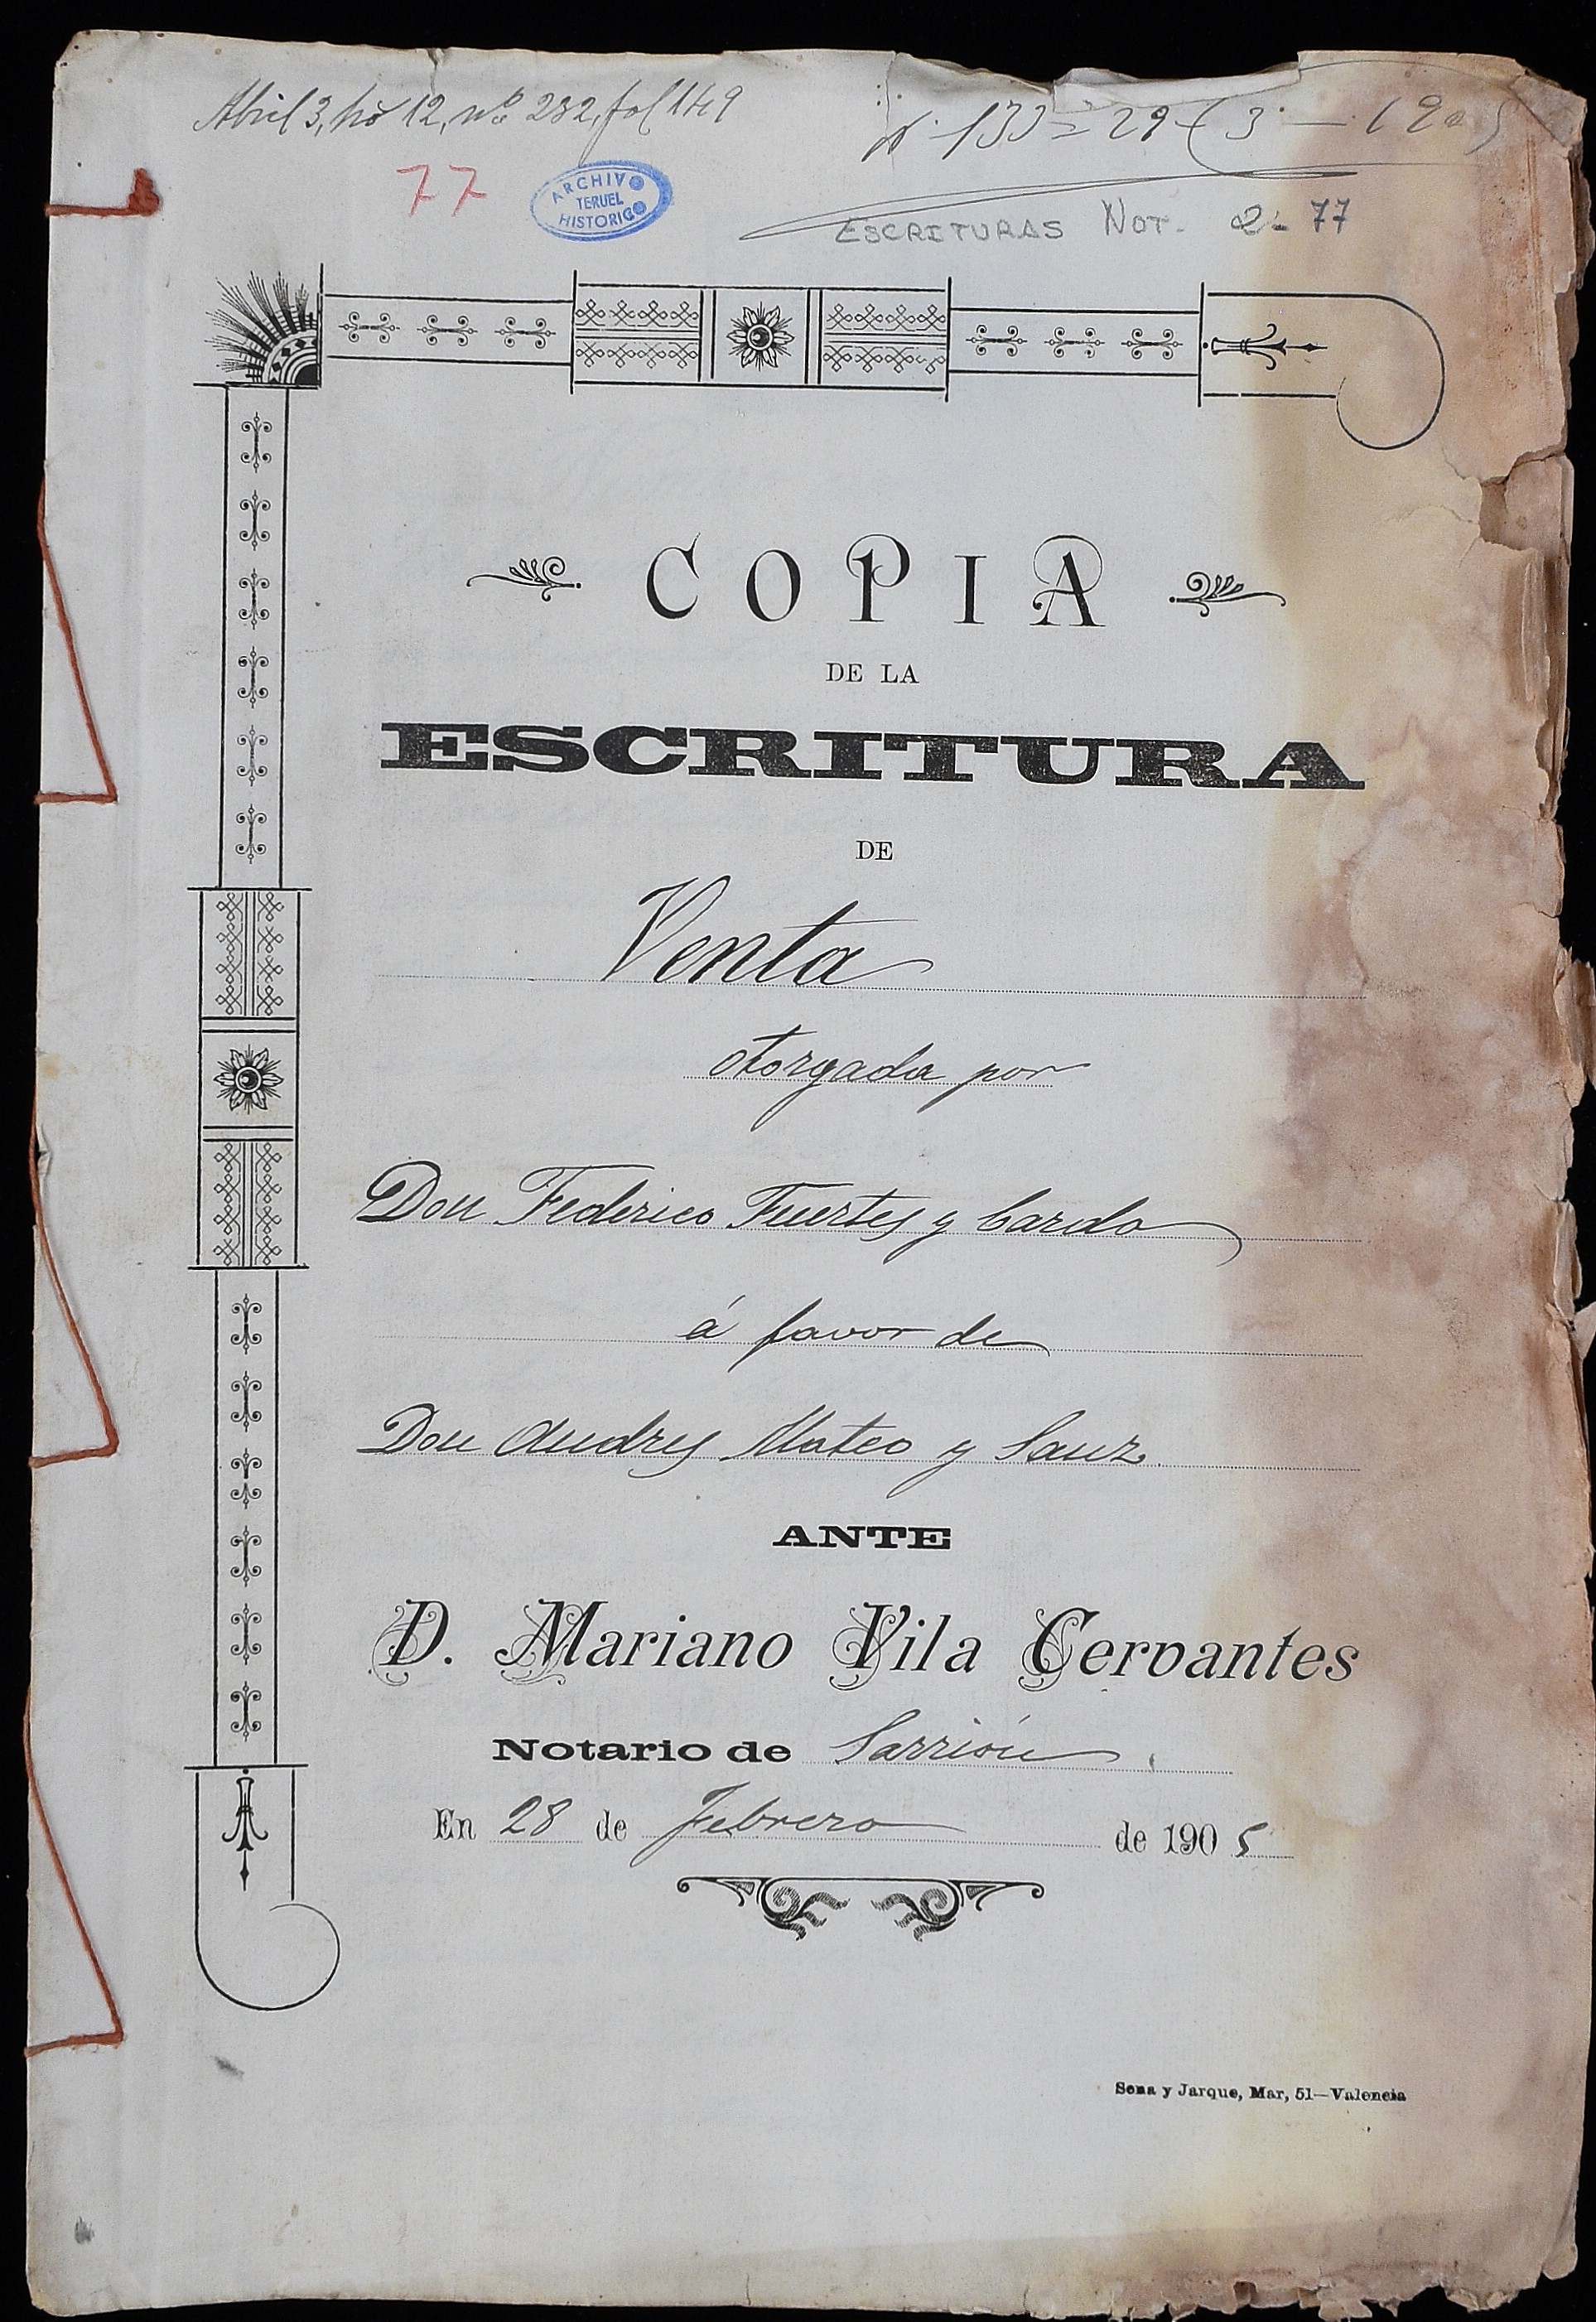 Abril 3, hõ 12, nº 232, fol 149
Nº 133 = 29 - (3 - 190
77
ARCHIVO
TERUEL
HISTORICO
ESCRITURAS NOT. 2- 77
COPIA
DE LA
ESCRITURA
DE
Venta
otorgada por
Don Federico Fuertes y Cardo
á favor de
Don Andres Mateo y Sanz
ANTE
D. Mariano Vila Cervantes
Notario de Sarrión
En 28 de Febrero de 1905
Sena y Jarque, Mar, 51—Valencia